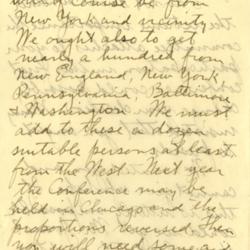 will of course be from
New York and vicinity
We ought also to get
nearly a hundred from
New England, New York,
Pennsylvania, Baltimore
& Washington. We must
add to these a dozen
suitable persons at least
from the West. Next year
the Conference may be
held in Chicago and the
proportions reversed. Then
you will need some aid